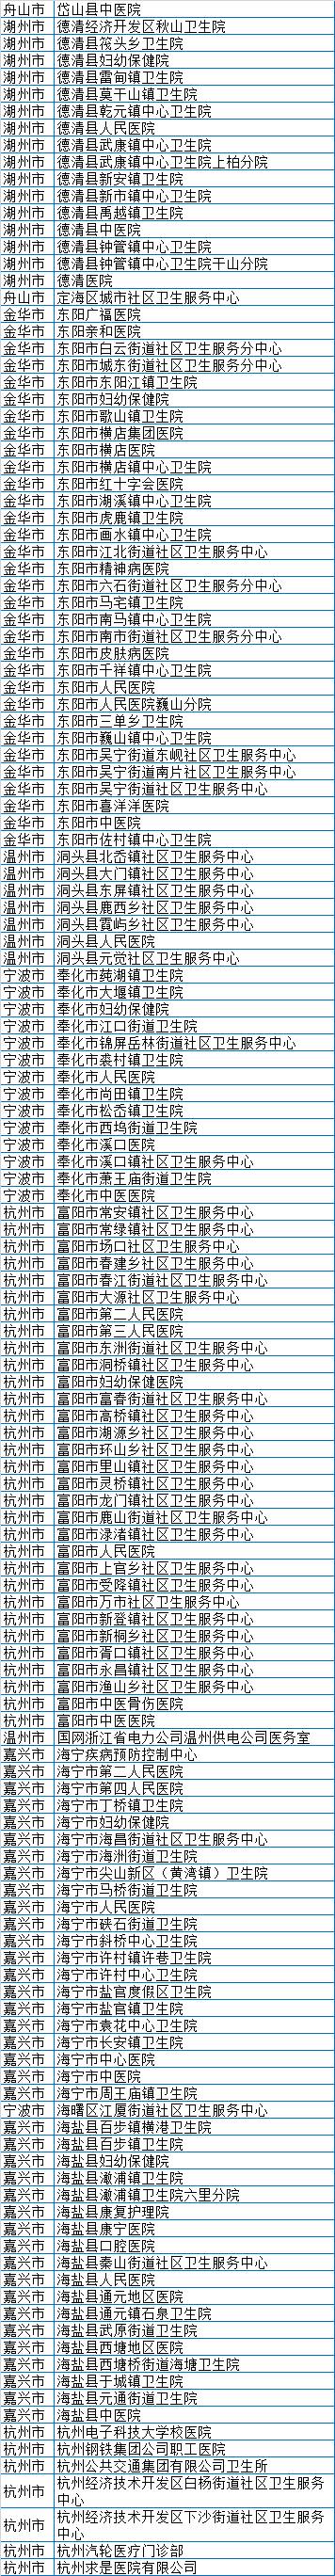 舟山市 岱山县中医院
湖州市 德清经济开发区秋山卫生院
湖州市 德清县筏头乡卫生院
湖州市 德清县妇幼保健院
湖州市 德清县雷甸镇卫生院
湖州市 德清县莫干山镇卫生院
湖州市 德清县乾元镇中心卫生院
湖州市 德清县人民医院
湖州市 德清县武康镇中心卫生院
湖州市 德清县武康镇中心卫生院上柏分院
湖州市 德清县新安镇卫生院
湖州市 德清县新市镇中心卫生院
湖州市 德清县禹越镇卫生院
湖州市 德清县中医院
湖州市 德清县钟管镇中心卫生院
湖州市 德清县钟管镇中心卫生院干山分院
湖州市 德清医院
舟山市 定海区城市社区卫生服务中心
金华市 东阳广福医院
金华市 东阳亲和医院
金华市 东阳市白云街道社区卫生服务分中心
金华市 东阳市城东街道社区卫生服务分中心
金华市 东阳市东阳江镇卫生院
金华市 东阳市妇幼保健院
金华市 东阳市歌山镇卫生院
金华市 东阳市横店集团医院
金华市 东阳市横店医院
金华市 东阳市横店镇中心卫生院
金华市 东阳市红十字会医院
金华市 东阳市湖溪镇中心卫生院
金华市 东阳市虎鹿镇卫生院
金华市 东阳市画水镇中心卫生院
金华市 东阳市江北街道社区卫生服务中心
金华市 东阳市精神病医院
金华市 东阳市六石街道社区卫生服务分中心
金华市 东阳市马宅镇卫生院
金华市 东阳市南马镇中心卫生院
金华市 东阳市南市街道社区卫生服务分中心
金华市 东阳市皮肤病医院
金华市 东阳市千祥镇中心卫生院
金华市 东阳市人民医院
金华市 东阳市人民医院巍山分院
金华市 东阳市三单乡卫生院
金华市 东阳市巍山镇中心卫生院
金华市 东阳市吴宁街道东岘社区卫生服务中心
金华市 东阳市吴宁街道南片社区卫生服务中心
金华市 东阳市吴宁街道社区卫生服务中心
金华市 东阳市喜洋洋医院
金华市 东阳市中医院
金华市 东阳市佐村镇中心卫生院
温州市 洞头县北岙镇社区卫生服务中心
温州市 洞头县大门镇社区卫生服务中心
温州市 洞头县东屏镇社区卫生服务中心
温州市 洞头县鹿西乡社区卫生服务中心
温州市 洞头县霓屿乡社区卫生服务中心
温州市 洞头县人民医院
温州市 洞头县元觉社区卫生服务中心
宁波市 奉化市莼湖镇卫生院
宁波市 奉化市大堰镇卫生院
宁波市 奉化市妇幼保健院
宁波市 奉化市江口街道卫生院
宁波市 奉化市锦屏岳林街道社区卫生服务中心
宁波市 奉化市裘村镇卫生院
宁波市 奉化市人民医院
宁波市 奉化市尚田镇卫生院
宁波市 奉化市松岙镇卫生院
宁波市 奉化市西坞街道卫生院
宁波市 奉化市溪口医院
宁波市 奉化市溪口镇社区卫生服务中心
宁波市 奉化市萧王庙街道卫生院
宁波市 奉化市中医医院
杭州市 富阳市常安镇社区卫生服务中心
杭州市 富阳市常绿镇社区卫生服务中心
杭州市 富阳市场口社区卫生服务中心
杭州市 富阳市春建乡社区卫生服务中心
杭州市 富阳市春江街道社区卫生服务中心
杭州市 富阳市大源社区卫生服务中心
杭州市 富阳市第二人民医院
杭州市 富阳市第三人民医院
杭州市 富阳市东洲街道社区卫生服务中心
杭州市 富阳市洞桥镇社区卫生服务中心
杭州市 富阳市妇幼保健医院
杭州市 富阳市富春街道社区卫生服务中心
杭州市 富阳市高桥镇社区卫生服务中心
杭州市 富阳市湖源乡社区卫生服务中心
杭州市 富阳市环山乡社区卫生服务中心
杭州市 富阳市里山镇社区卫生服务中心
杭州市 富阳市灵桥镇社区卫生服务中心
杭州市 富阳市龙门镇社区卫生服务中心
杭州市 富阳市鹿山街道社区卫生服务中心
杭州市 富阳市渌渚镇社区卫生服务中心
杭州市 富阳市人民医院
杭州市 富阳市上官乡社区卫生服务中心
杭州市 富阳市受降镇社区卫生服务中心
杭州市 富阳市万市社区卫生服务中心
杭州市 富阳市新登镇社区卫生服务中心
杭州市 富阳市新桐乡社区卫生服务中心
杭州市 富阳市胥口镇社区卫生服务中心
杭州市 富阳市永昌镇社区卫生服务中心
杭州市 富阳市渔山乡社区卫生服务中心
杭州市 富阳市中医骨伤医院
杭州市 富阳市中医医院
温州市 国网浙江省电力公司温州供电公司医务室
嘉兴市 海宁疾病预防控制中心
嘉兴市 海宁市第二人民医院
嘉兴市 海宁市第四人民医院
嘉兴市 海宁市丁桥镇卫生院
嘉兴市 海宁市妇幼保健院
嘉兴市 海宁市海昌街道社区卫生服务中心
嘉兴市 海宁市海洲街道卫生院
嘉兴市 海宁市尖山新区（黄湾镇）卫生院
嘉兴市 海宁市马桥街道卫生院
嘉兴市 海宁市人民医院
嘉兴市 海宁市硖石街道卫生院
嘉兴市 海宁市斜桥中心卫生院
嘉兴市 海宁市许村镇许巷卫生院
嘉兴市 海宁市许村中心卫生院
嘉兴市 海宁市盐官度假区卫生院
嘉兴市 海宁市盐官镇卫生院
嘉兴市 海宁市袁花中心卫生院
嘉兴市 海宁市长安镇卫生院
嘉兴市 海宁市中心医院
嘉兴市 海宁市中医院
嘉兴市 海宁市周王庙镇卫生院
宁波市 海曙区江厦街道社区卫生服务中心
嘉兴市 海盐县百步镇横港卫生院
嘉兴市 海盐县百步镇卫生院
嘉兴市 海盐县妇幼保健院
嘉兴市 海盐县澉浦镇卫生院
嘉兴市 海盐县澉浦镇卫生院六里分院
嘉兴市 海盐县康复护理院
嘉兴市 海盐县康宁医院
嘉兴市 海盐县口腔医院
嘉兴市 海盐县秦山街道社区卫生服务中心
嘉兴市 海盐县人民医院
嘉兴市 海盐县通元地区医院
嘉兴市 海盐县通元镇石泉卫生院
嘉兴市 海盐县武原街道卫生院
嘉兴市 海盐县西塘地区医院
嘉兴市 海盐县西塘桥街道海塘卫生院
嘉兴市 海盐县于城镇卫生院
嘉兴市 海盐县元通街道卫生院
嘉兴市 海盐县中医院
杭州市 杭州电子科技大学校医院
杭州市 杭州钢铁集团公司职工医院
杭州市 杭州公共交通集团有限公司卫生所
杭州市 杭州经济技术开发区白杨街道社区卫生服务
中心
杭州市 杭州经济技术开发区下沙街道社区卫生服务
中心
杭州市 杭州汽轮医疗门诊部
杭州市 杭州求是医院有限公司